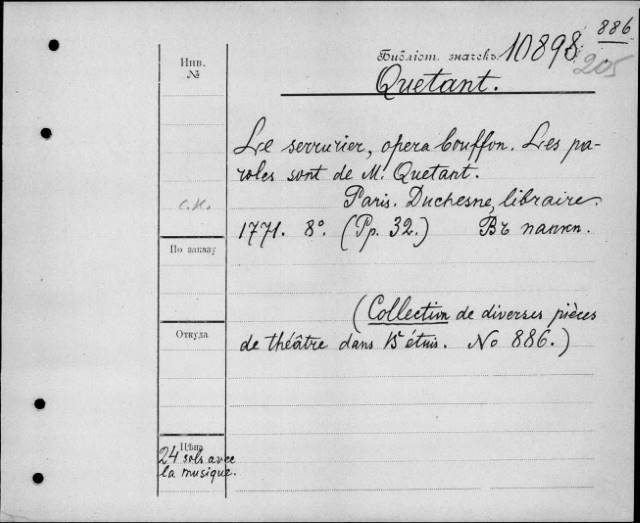 886
Библіот. значекъ 10898
205
Инв.
№
Quetant.
Le serrurier, opera bouffon. Les pa-
roles sont de M. Quetant.
с.н.
Paris. Duchesne, libraire.
1771. 8°. (Pp. 32.) Въ папкѣ.
По заказу
(Collection de diverses pièces
Откуда
de théâtre dans 15 étuis. No 886.)
Цѣна
24 sols avec
la musique.